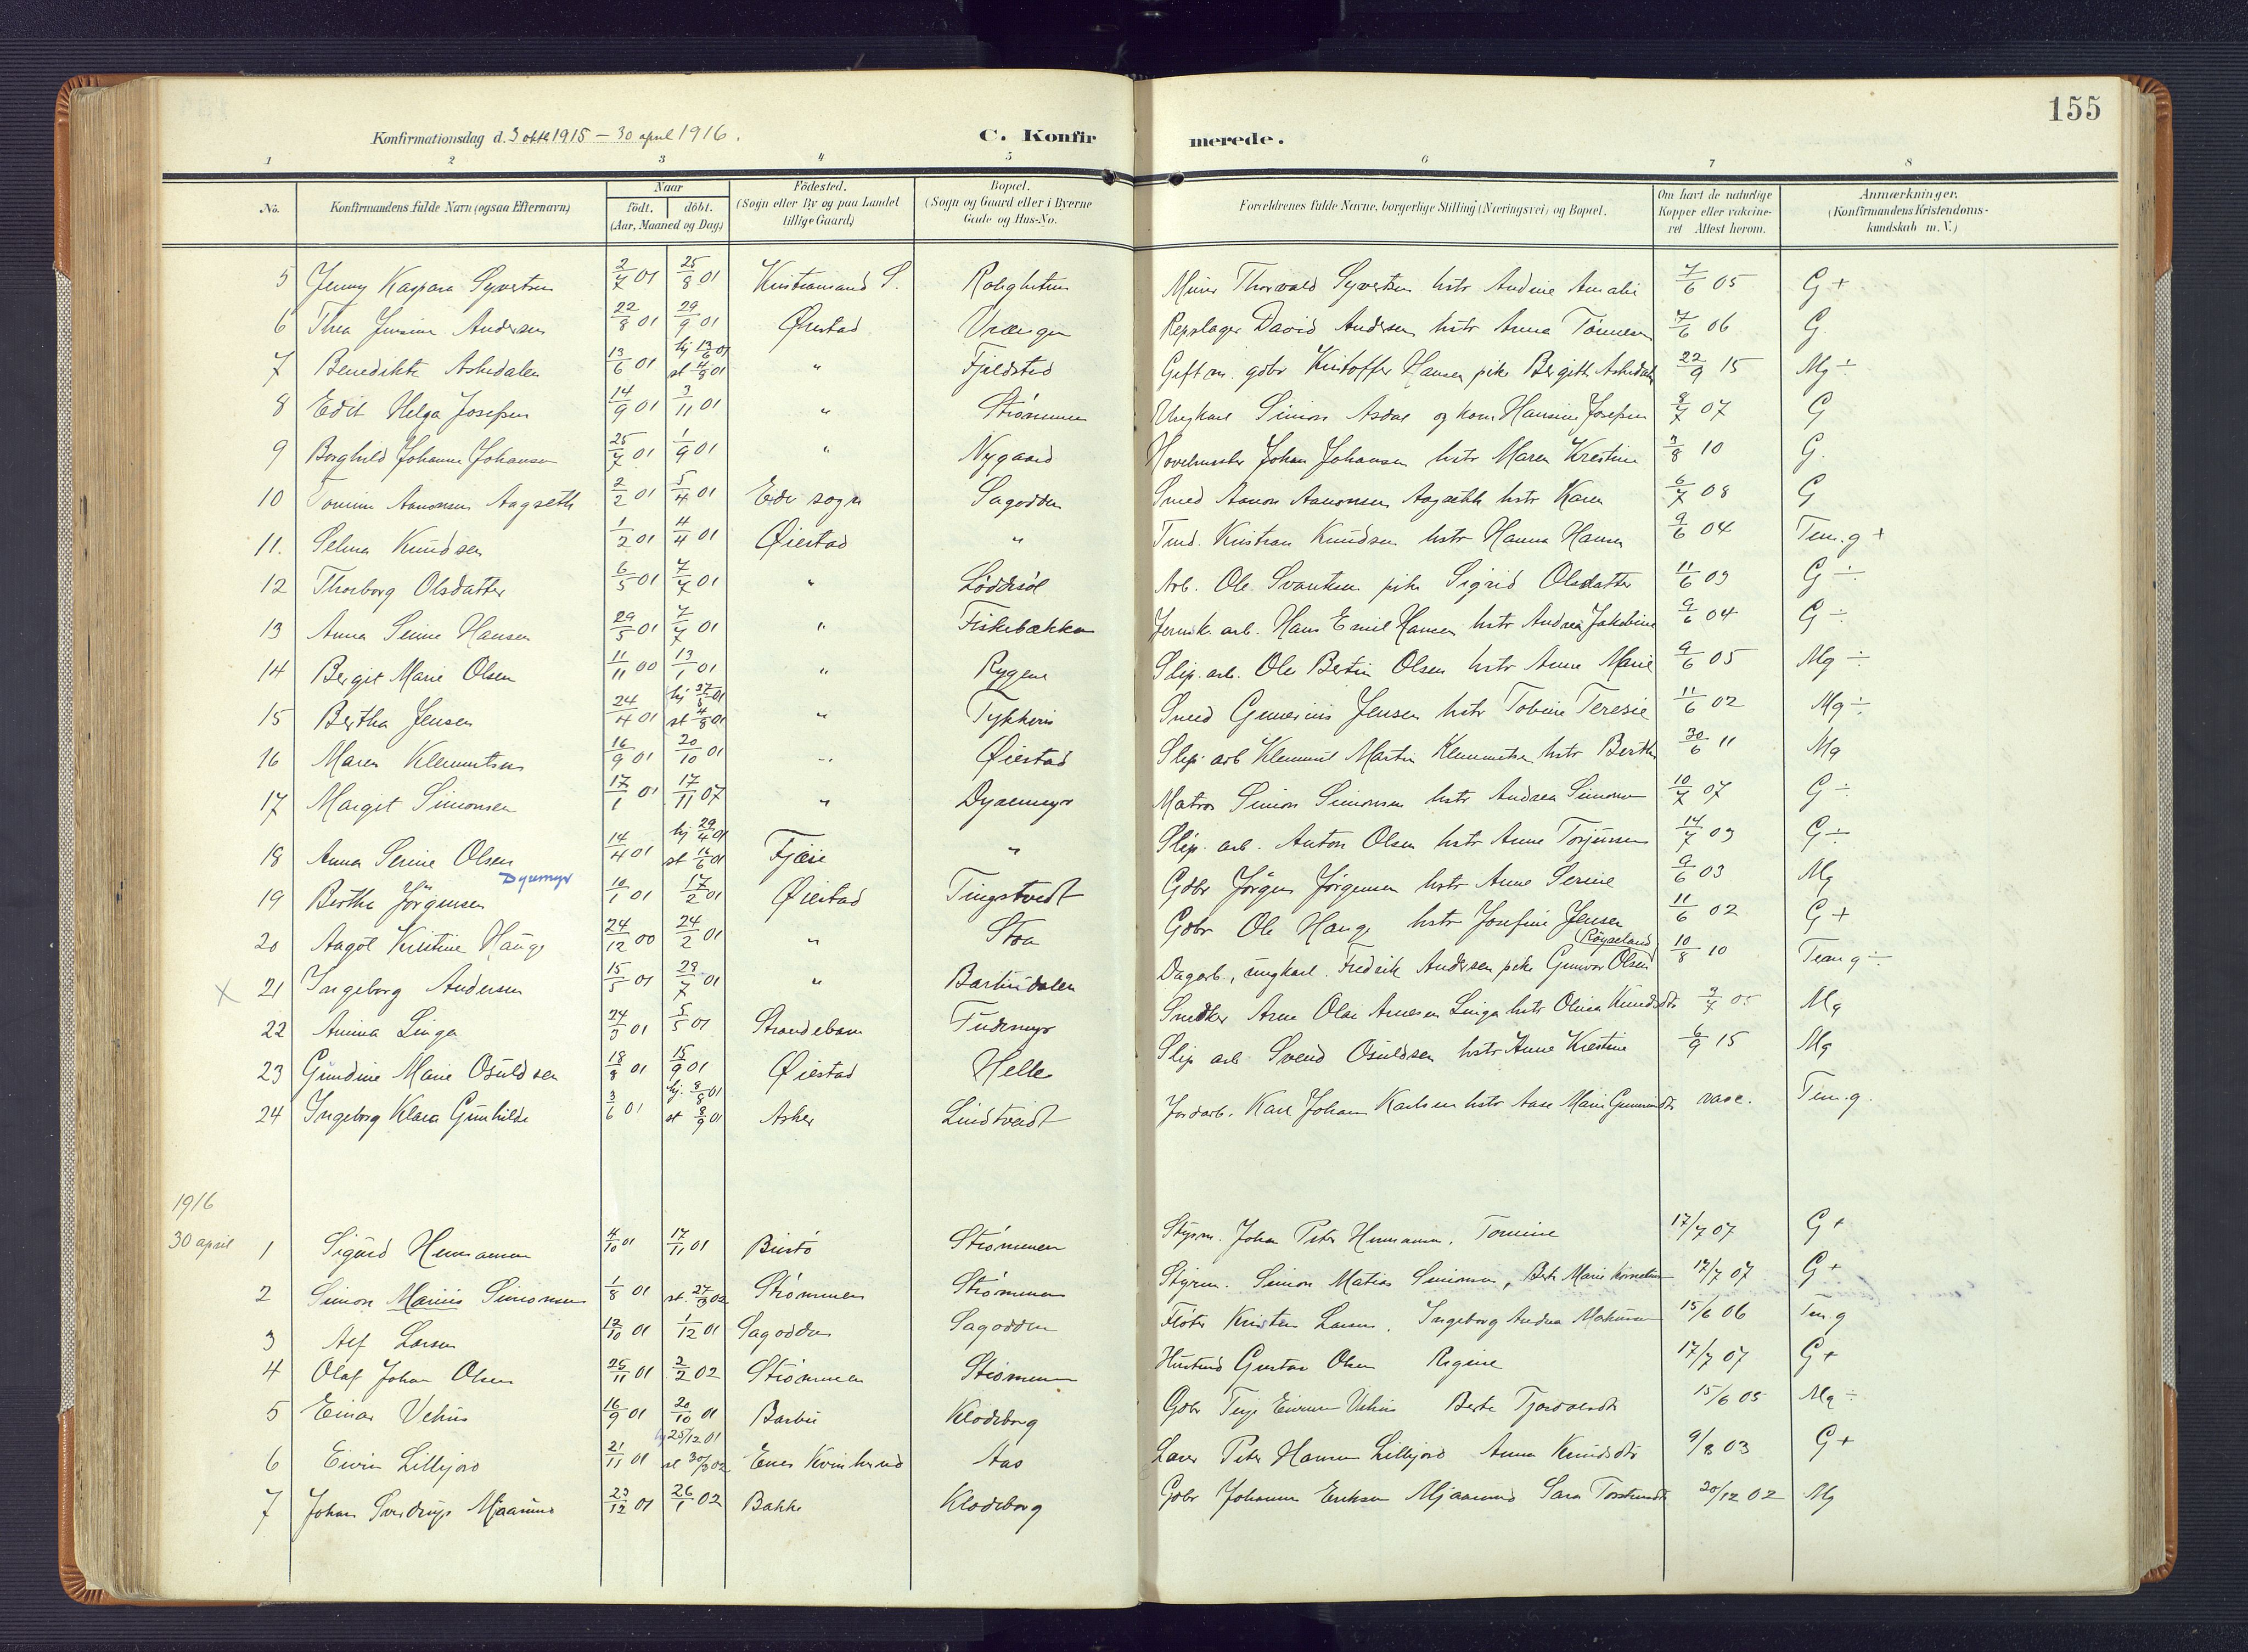 155
Konfirmationsdag d. 3 okt 1915 – 30 april 1916.
C. Konfirmerede.
1 2 3 4 5 6 7 8
No.
Konfirmandens fulde Navn (ogsaa Efternavn)
Naar
födt. döbt.
(Aar, Maaned og Dag)
Födested.
(Sogn eller By og paa Landet
tillige Gaard)
Bopæl.
(Sogn og Gaard eller i Byerne
Gade og Hus-No.
Forældrenes fulde Navne, borgerlige Stilling (Næringsvei) og Bopæl.
Om havt de naturlige
Kopper eller vakcine-
ret Attest herom.
Anmærkninger.
(Konfirmandens Kristendoms-
kundskab m.V.)
5 Jenny Kaspara Syvertsen 2/7 01 25/8 01 Kristiansand S. Murer Thorvald Syvertsen hstr Andine Amalie 7/6 05 G +
6 Thea Andersen 22/8 01 29/9 01 Øiestad Vrængen Repslager David Andersen hstr Anna Tönnesen 7/6 06 G.
7 Benedikte Askedalen 13/6 01 hj 13/6 01 st 4/8 01 " Fjeldsted Gift m. gdbr Kristoffer Hansen pike Bergith Askedalen 22/9 15 Mg ÷
8 Edit Helga Josefsen 14/9 01 3/11 01 " Strömmen Ungkarl Simon Asdal og kone Hansine Josefsen 8/7 07 G
9 Borghild Johanne Johansen 25/7 01 1/9 01 " Nygaard Hovelmester Johan Johansen hstr Maren Kristine 3/8 10 G.
10 Tomine Aanonsen Aagseth 2/2 01 5/4 01 Eide sogn Sagodden Smed Aanon Aanonsen Aagseth hstr Karen 6/7 08 G
11. Selma Knudsen 1/2 01 4/4 01 Øiestad " Kristian Knudsen hstr Hanna Hansen 9/6 04 Tem. g +
12 Thorborg Olsdatter 6/5 01 7/7 01 " Löddesöl Arb. Ole Svantesen pike Sigrid Olsdatter 11/6 03 G ÷
13 Anna Serine Hansen 29/5 01 7/7 01 " Fiskebækken Jernv. arb. Hans Emil Hansen hstr Andrea Jakobine 9/6 04 G ÷
14 Bergit Marie Olsen 11/11 00 13/1 01 " Rygene Slip. arb. Ole Bertin Olsen hstr Anne Marie 9/6 05 Mg ÷
15 Bertha Jensen 24/4 01 hj 27/6 01 st 4/8 01 " Smed Gunerius Jensen hstr Tobine Teresie 11/6 02 Mg ÷
16 Maren Klemmetsen 16/9 01 20/10 01 " Øiestad Slip. arb Klemmet Martin Klemmetsen hstr Berthe 30/6 11 Mg
17 Margit Simonsen 17/1 01 17/11 07 " Dyremyr Matros Simon Simonsen hstr Andrea Simonsen 10/7 07 G ÷
18 Anna Serine Olsen 14/4 01 hj. 29/4 01 st 16/6 01 Fjære " Slip. arb. Anton Olsen hstr Anne Torjussen 14/7 03 G ÷
Dyremyr
19 Berthe Jörgensen 10/1 01 17/2 01 Øiestad Tingstveidt Gdbr Jörgen Jörgensen hstr Anne Serine 9/6 03 Mg
20 Aagot Kristine Hauge 24/12 00 24/2 01 " Stoa Gdbr Ole Hauge hstr Josefine Jensen 11/6 02 G +
X 21 Ingeborg Andersen 15/5 01 29/7 01 " Barbudalen Dagarb., ungkarl Fredrik Andersen pike Gunvor Olsen (Röyseland) 10/8 10 Tem g ÷
22 Amina Linga 24/3 01 5/5 01 Strandebarm Snedker Arne Olai Arnesen Linga hstr Olina Knudsdtr 3/7 05 Mg
23 Gundine Marie Osuldsen 18/8 01 15/9 01 Øiestad Helle Slip arb Svend Osuldsen hstr Anne Kirstine 6/9 15 Mg
24 Ingeborg Klara Gunhilde 3/6 01 hj. 8/8 01 st 8/9 01 Asker Lindtveidt Jordarb. Karl Johan Karlsen hstr Aase Marie Gunmundsdtr vacc. Tem. g.
1916
30 april 1 Sigurd Hermansen 4/10 01 17/11 01 Strömmen Styrm. Johan Peter Hermansen, Tomine 17/7 07 G +
2 Simon Marius Simonsen 1/8 01 st. 27/3 02 Strömmen Strömmen Styrm. Simon Matias Simonsen, Berte Marie 17/7 07 G +
3 Alf Larsen 12/10 01 1/12 01 Sagodden Sagodden Flöter Kristen Larsen, Ingeborg Andrea 15/6 06 Tm. g
4 Olaf Johan Olsen 25/11 01 2/2 02 Strömmen Strömmen Gustav Olsen Regine 17/7 07 G +
5 Einar Vehus 16/9 01 20/10 01 Barbu Klodeborg Gdbr Terje Vehus Berte 15/6 05 Mg ÷
6 Eivin Lillejord 21/11 01 hj 25/12 01 st 30/3 02 Enes Kvinherred Aas Peter Hansen Lillejord Anna Knudsdtr 9/8 03 G +
7 Johan Sverdrup Mjaasund 23/12 01 26/1 02 Bakke Klodeborg Gdbr Johannes Eriksen Mjaasund Sara 20/12 02 Mg